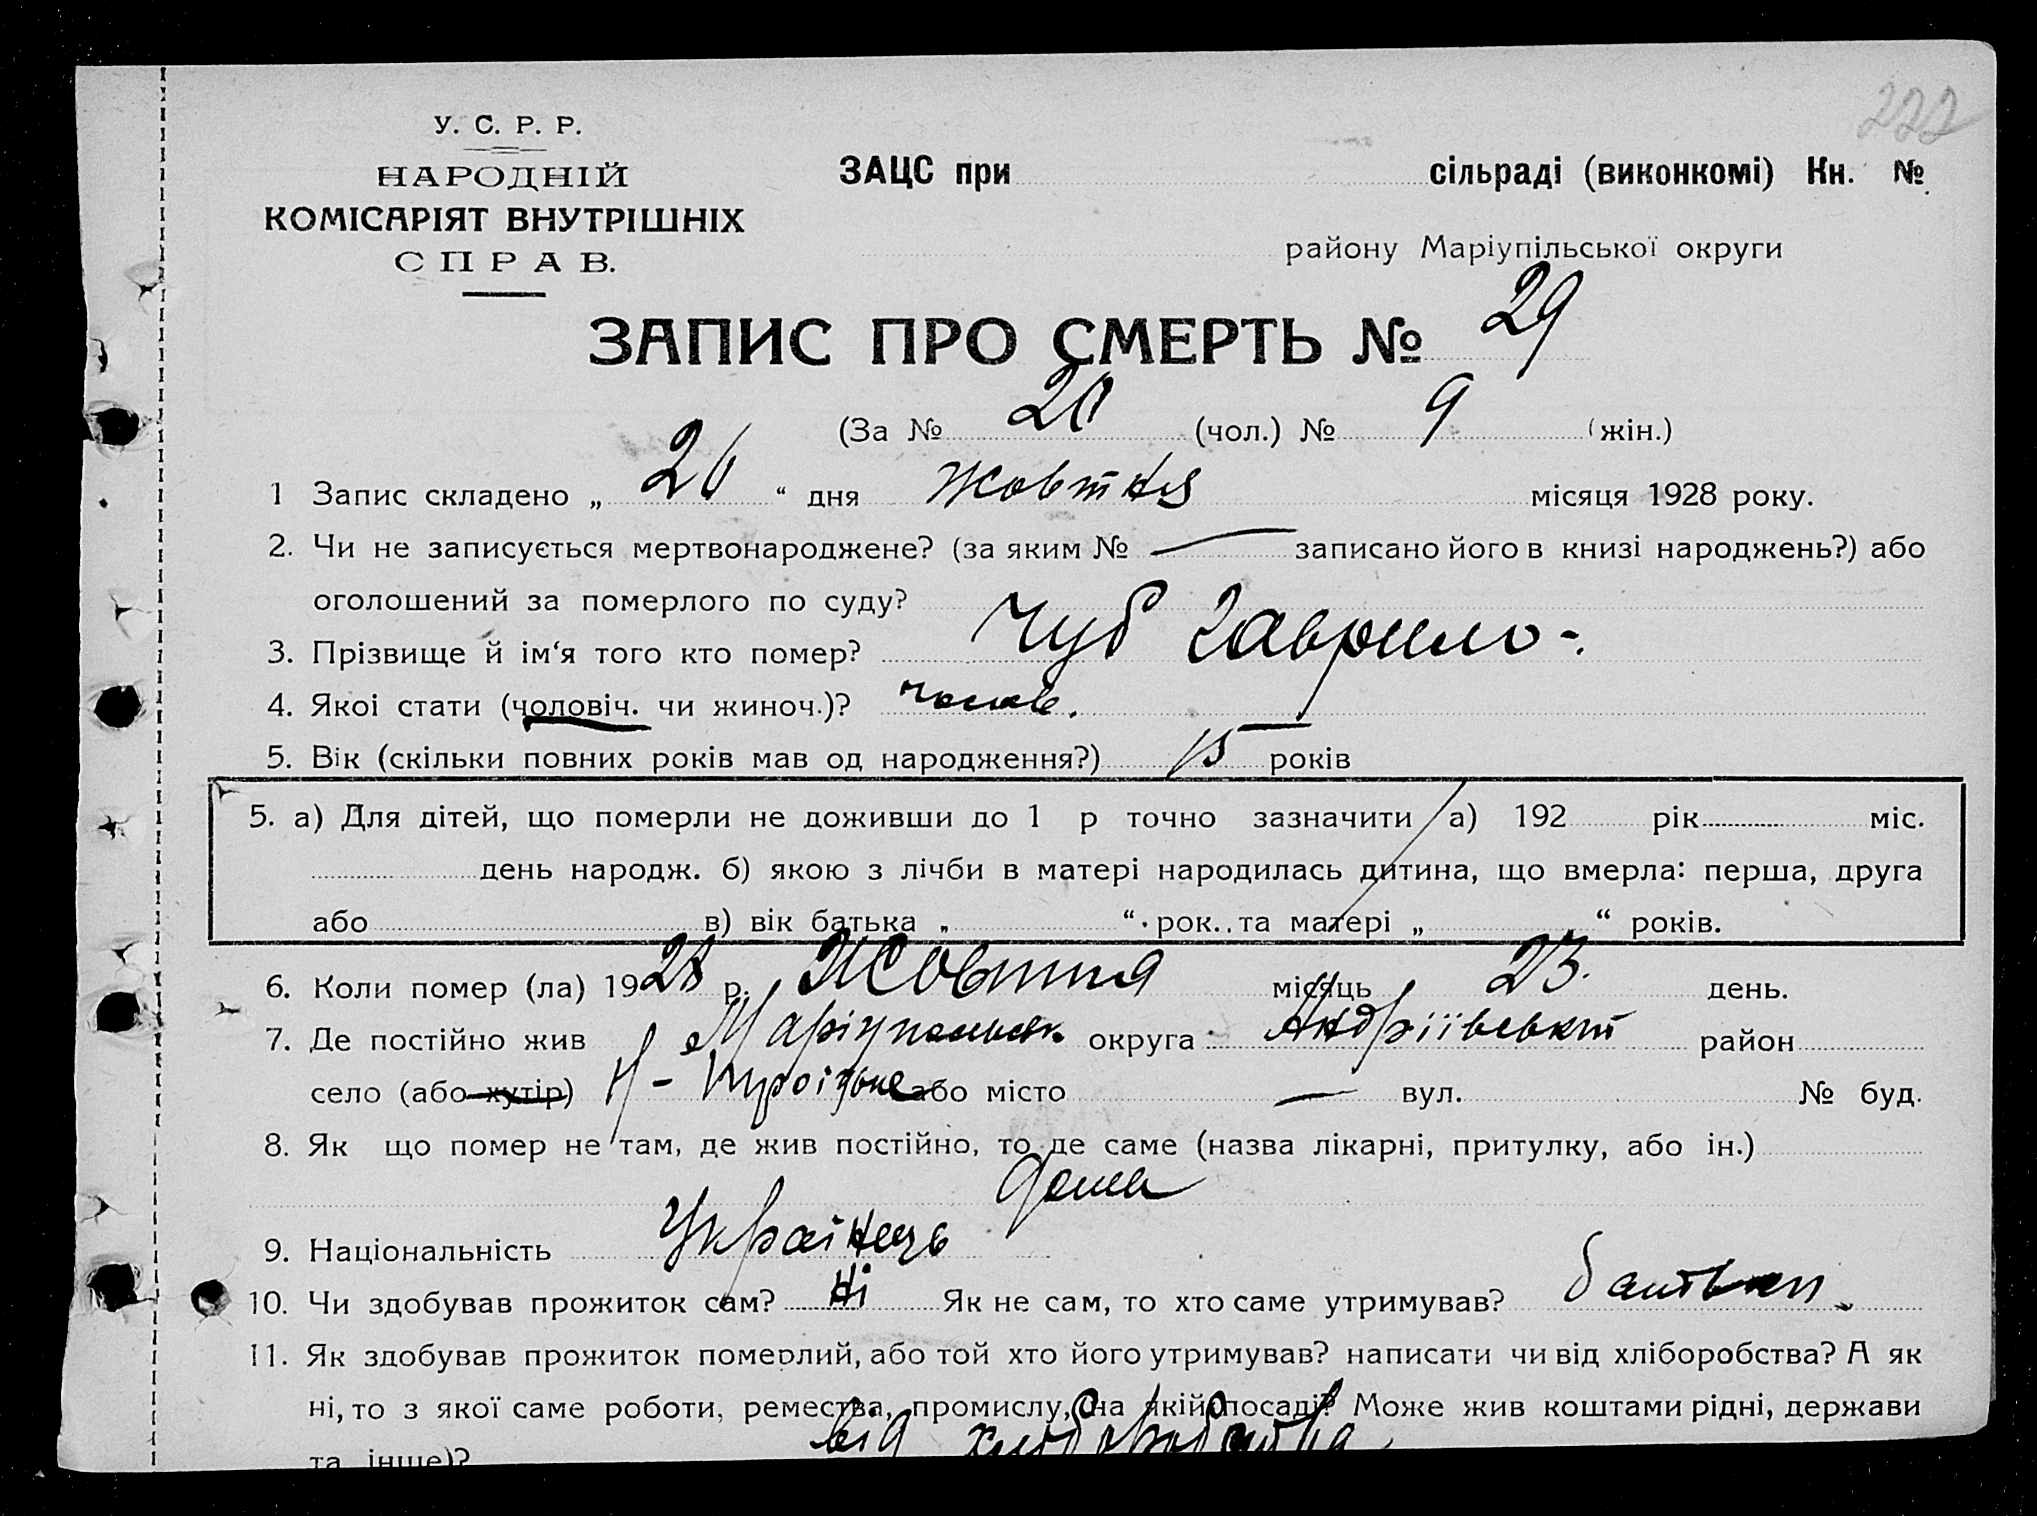 222
У. С. Р. Р.
НАРОДНІЙ
КОМІСАРІЯТ ВНУТРІШНІХ
СПРАВ.
ЗАЦС при сільраді (виконкомі) Кн. №
району Маріупільської округи
ЗАПИС ПРО СМЕРТЬ № 29
(За № 20 (чол.) № 9 (жін.)
1 Запис складено „ 26 “ дня Жовтня місяця 1928 року.
2. Чи не записується мертвонароджене? (за яким № — записано його в книзі народжень?) або
оголошений за померлого по суду?
3. Прізвище й ім‘я того кто помер? Чуб Гаврило -.
4. Якоі стати (чоловіч. чи жиноч.)? чолов.
5. Вік (скільки повних років мав од народження?) 15 років
5. а) Для дітей, що померли не доживши до 1 р точно зазначити а) 192 рік міс.
день народж. б) якою з лічби в матері народилась дитина, що вмерла: перша, друга
або в) вік батька „ “ рок.. та матері „ “ років.
6. Коли помер (ла) 1928 р. Жовтня місяць 23. день.
7. Де постійно жив Маріупольськ округа Андріївськт район
село (або хутір) Н - або місто — вул. № буд.
8. Як що помер не там, де жив постійно, то де саме (назва лікарні, притулку, або ін.)
дома
9. Національність Українець
10. Чи здобував прожиток сам? Ні Як не сам, то хто саме утримував? батьки.
11. Як здобував прожиток померлий, або той хто його утримував? написати чи від хліборобства? А як
ні, то з якої саме роботи, ремества, промислу, на якій посаді? Може жив коштами рідні, держави
та інше)? від хліборобства